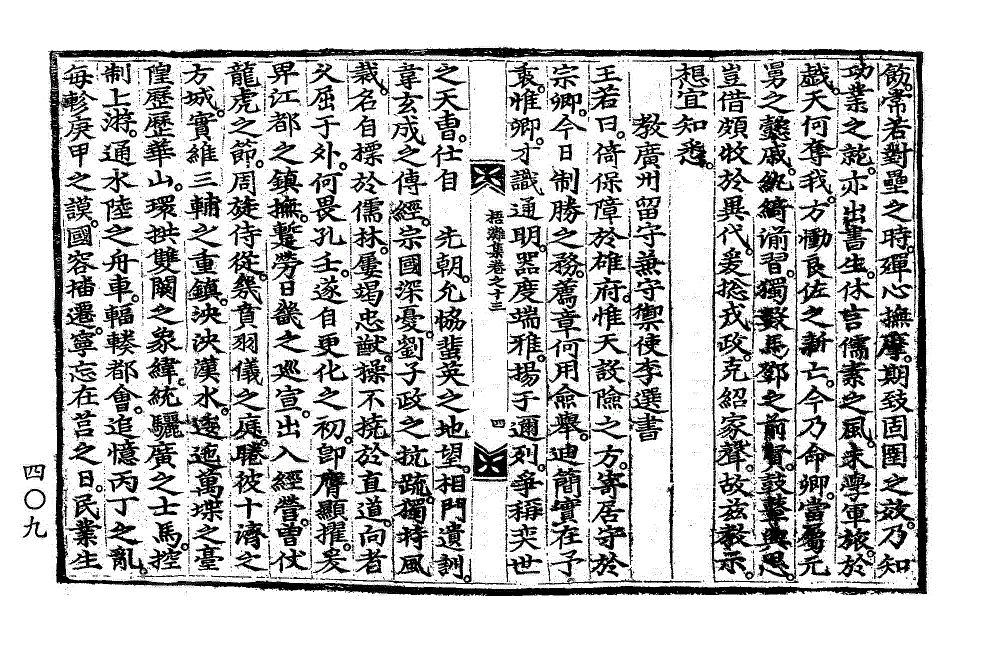 飭常若對壘之時殫心撫摩期致固圉之效乃知
功業之乾亦出書生休言儒素之風未學軍旅於
戱天何奪我方慟良佐之新亡今乃命卿當屬元
舅之懿戚紈綺湔習獨數馬鄧之前賢鼓鼙興思
豈借頗牧於異代爰捴戎政克紹家聲故玆敎示
想宜知悉
敎廣州留守兼守禦使李選書
王若曰倚保障於雄府惟天設險之方寄居守於
宗卿今日制勝之務薦章何用僉擧迪簡實在予
衷惟卿才識通明器度端雅揚于邇列爭稱奕世
梧灘集卷之十三
四
之天曺仕自　先朝允協蜚英之地望相門遺訓
韋玄成之傳經宗國深憂劉子政之抗疏獨特風
裁名自摽於儒林屢竭忠猷操不撓於直道向者
久屈于外何畏孔壬遂自更化之初卽膺顯擢爰
畀江都之鎭撫蹔勞日畿之巡宣出入經營曾仗
龍虎之節周旋侍從幾賁羽儀之庭睠彼十濟之
方城實維三輔之重鎭泱泱漢水逶迤萬堞之臺
隍歷歷華山環拱雙闕之象緯統驪廣之士馬控
制上游通水陸之舟車輻輳都會追憶丙丁之亂
每軫庚甲之謨國容播遷寧忘在莒之日民業生
四〇九